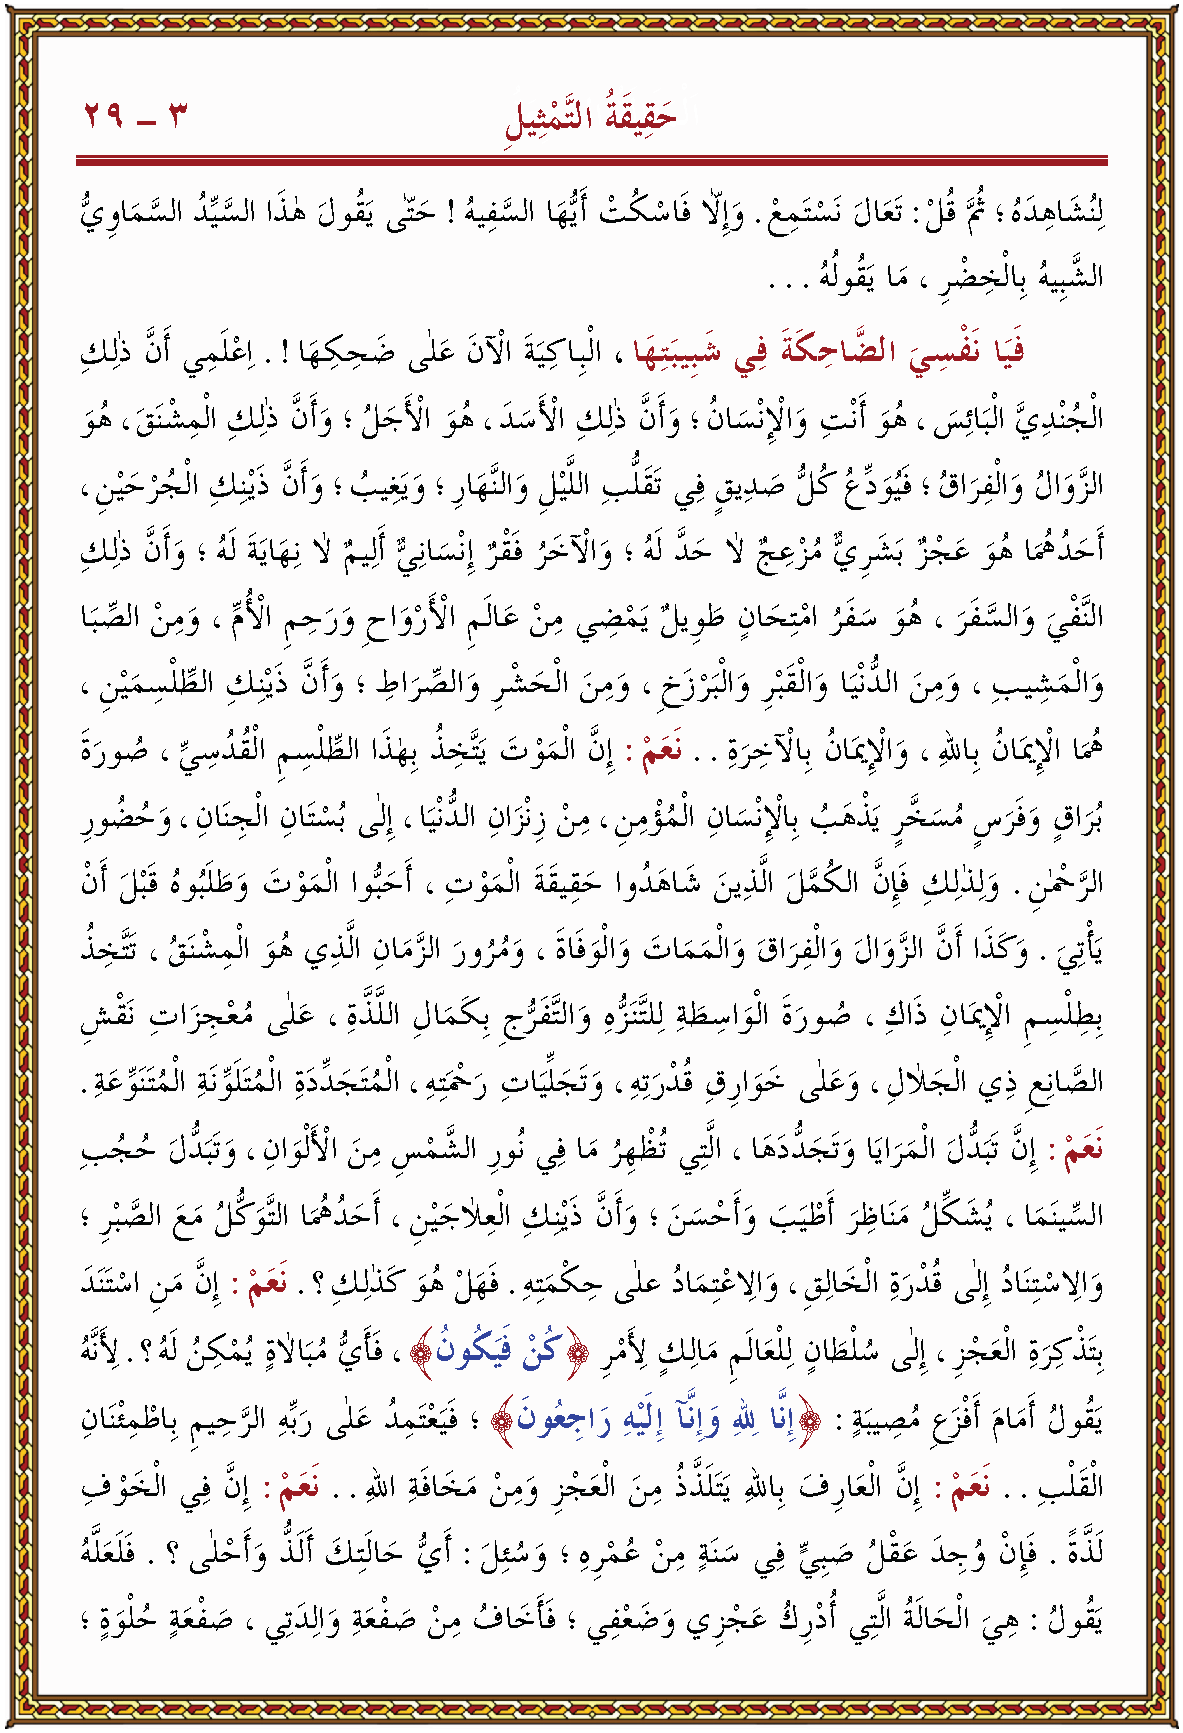 حَقِيقَةُ التَّمْثِيلِ
٣ – ٢٩
لِنُشَاهِدَهُ ؛ ثُمَّ قُلْ : تَعَالَ نَسْتَمِعْ . وَإِلَّا فَاسْكُتْ أَيُّهَا السَّفِيهُ ! حَتَّى يَقُولَ هٰذَا السَّيِّدُ السَّمَاوِيُّ
الشَّبِيهُ بِالْخِضْرِ ، مَا يَقُولُهُ . . .
فَيَا نَفْسِيَ الضَّاحِكَةَ فِي شَبِيبَتِهَا ، الْبَاكِيَةَ الْآنَ عَلٰى ضَحِكِهَا ! . اِعْلَمِي أَنَّ ذٰلِكِ
الْجُنْدِيَّ الْبَائِسَ ، هُوَ أَنْتِ وَالْإِنْسَانُ ؛ وَأَنَّ ذٰلِكِ الْأَسَدَ ، هُوَ الْأَجَلُ ؛ وَأَنَّ ذٰلِكِ الْمِشْنَقَ ، هُوَ
الزَّوَالُ وَالْفِرَاقُ ؛ فَيُوَدِّعُ كُلُّ صَدِيقٍ فِي تَقَلُّبِ اللَّيْلِ وَالنَّهَارِ ؛ وَيَغِيبُ ؛ وَأَنَّ ذَيْنِكِ الْجُرْحَيْنِ ،
أَحَدُهُمَا هُوَ عَجْزٌ بَشَرِيٌّ مُزْعِجٌ لَا حَدَّ لَهُ ؛ وَالْآخَرُ فَقْرٌ إِنْسَانِيٌّ أَلِيمٌ لَا نِهَايَةَ لَهُ ؛ وَأَنَّ ذٰلِكِ
النَّفْيَ وَالسَّفَرَ ، هُوَ سَفَرُ امْتِحَانٍ طَوِيلٌ يَمْضِي مِنْ عَالَمِ الْأَرْوَاحِ وَرَحِمِ الْأُمِّ ، وَمِنْ الصِّبَا
وَالْمَشِيبِ ، وَمِنَ الدُّنْيَا وَالْقَبْرِ وَالْبَرْزَخِ ، وَمِنَ الْحَشْرِ وَالصِّرَاطِ ؛ وَأَنَّ ذَيْنِكِ الطِّلْسِمَيْنِ ،
هُمَا الْإِيمَانُ بِاللهِ ، وَالْإِيمَانُ بِالْآخِرَةِ . . نَعَمْ : إِنَّ الْمَوْتَ يَتَّخِذُ بِهٰذَا الطِّلْسِمِ الْقُدُسِيِّ ، صُورَةَ
بُرَاقٍ وَفَرَسٍ مُسَخَّرٍ يَذْهَبُ بِالْإِنْسَانِ الْمُؤْمِنِ ، مِنْ زِنْزَانِ الدُّنْيَا ، إِلٰى بُسْتَانِ الْجِنَانِ ، وَحُضُورِ
الرَّحْمٰنِ . وَلِذٰلِكِ فَإِنَّ الْكُمَّلَ الَّذِينَ شَاهَدُوا حَقِيقَةَ الْمَوْتِ ، أَحَبُّوا الْمَوْتَ وَطَلَبُوهُ قَبْلَ أَنْ
يَأْتِيَ . وَكَذَا أَنَّ الزَّوَالَ وَالْفِرَاقَ وَالْمَمَاتَ وَالْوَفَاةَ ، وَمُرُورَ الزَّمَانِ الَّذِي هُوَ الْمِشْنَقُ ، تَتَّخِذُ
بِطِلْسِمِ الْإِيمَانِ ذَاكِ ، صُورَةَ الْوَاسِطَةِ لِلتَّنَزُّهِ وَالتَّفَرُّجِ بِكَمَالِ اللَّذَّةِ ، عَلٰى مُعْجِزَاتِ نَقْشِ
الصَّانِعِ ذِي الْجَلَالِ ، وَعَلٰى خَوَارِقِ قُدْرَتِهِ ، وَتَجَلِّيَاتِ رَحْمَتِهِ ، الْمُتَجَدِّدَةِ الْمُتَلَوِّنَةِ الْمُتَنَوِّعَةِ .
نَعَمْ : إِنَّ تَبَدُّلَ الْمَرَايَا وَتَجَدُّدَهَا ، الَّتِي تُظْهِرُ مَا فِي نُورِ الشَّمْسِ مِنَ الْأَلْوَانِ ، وَتَبَدُّلَ حُجُبِ
السِّنَيمَا ، يُشَكِّلُ مَنَاظِرَ أَطْيَبَ وَأَحْسَنَ ؛ وَأَنَّ ذَيْنِكِ الْعِلَاجَيْنِ ، أَحَدُهُمَا التَّوَكُّلُ مَعَ الصَّبْرِ ؛
وَالِاسْتِنَادُ إِلٰى قُدْرَةِ الْخَالِقِ ، وَالِاعْتِمَادُ علٰى حِكْمَتِهِ . فَهَلْ هُوَ كَذٰلِكِ ؟ . نَعَمْ : إِنَّ مَنِ اسْتَنَدَ
بِتَذْكِرَةِ الْعَجْزِ ، إِلٰى سُلْطَانٍ لِلْعَالَمِ مَالِكٍ لِأَمْرِ ﴿كُنْ فَيَكُونُ﴾ ، فَأَيُّ مُبَالَاةٍ يُمْكِنُ لَهُ ؟ . لِأَنَّهُ
يَقُولُ أَمَامَ أَفْزَعِ مُصِيبَةٍ : ﴿إِنَّا لِلهِ وَإِنَّآ إِلَيْهِ رَاجِعُونَ﴾ ؛ فَيَعْتَمِدُ عَلٰى رَبِّهِ الرَّحِيمِ بِاطْمِئْنَانِ
الْقَلْبِ . . نَعَمْ : إِنَّ الْعَارِفَ بِاللهِ يَتَلَذَّذُ مِنَ الْعَجْزِ وَمِنْ مَخَافَةِ اللهِ . . نَعَمْ : إِنَّ فِي الْخَوْفِ
لَذَّةً . فَإِنْ وُجِدَ عَقْلُ صَبِيٍّ فِي سَنَةٍ مِنْ عُمْرِهِ ؛ وَسُئِلَ : أَيُّ حَالَتِكَ أَلَذُّ وَأَحْلٰى ؟ . فَلَعَلَّهُ
يَقُولُ : هِيَ الْحَالَةُ الَّتِي أُدْرِكُ عَجْزِي وَضَعْفِي ؛ فَأَخَافُ مِنْ صَفْعَةِ وَالِدَتِي ، صَفْعَةٍ حُلْوَةٍ ؛